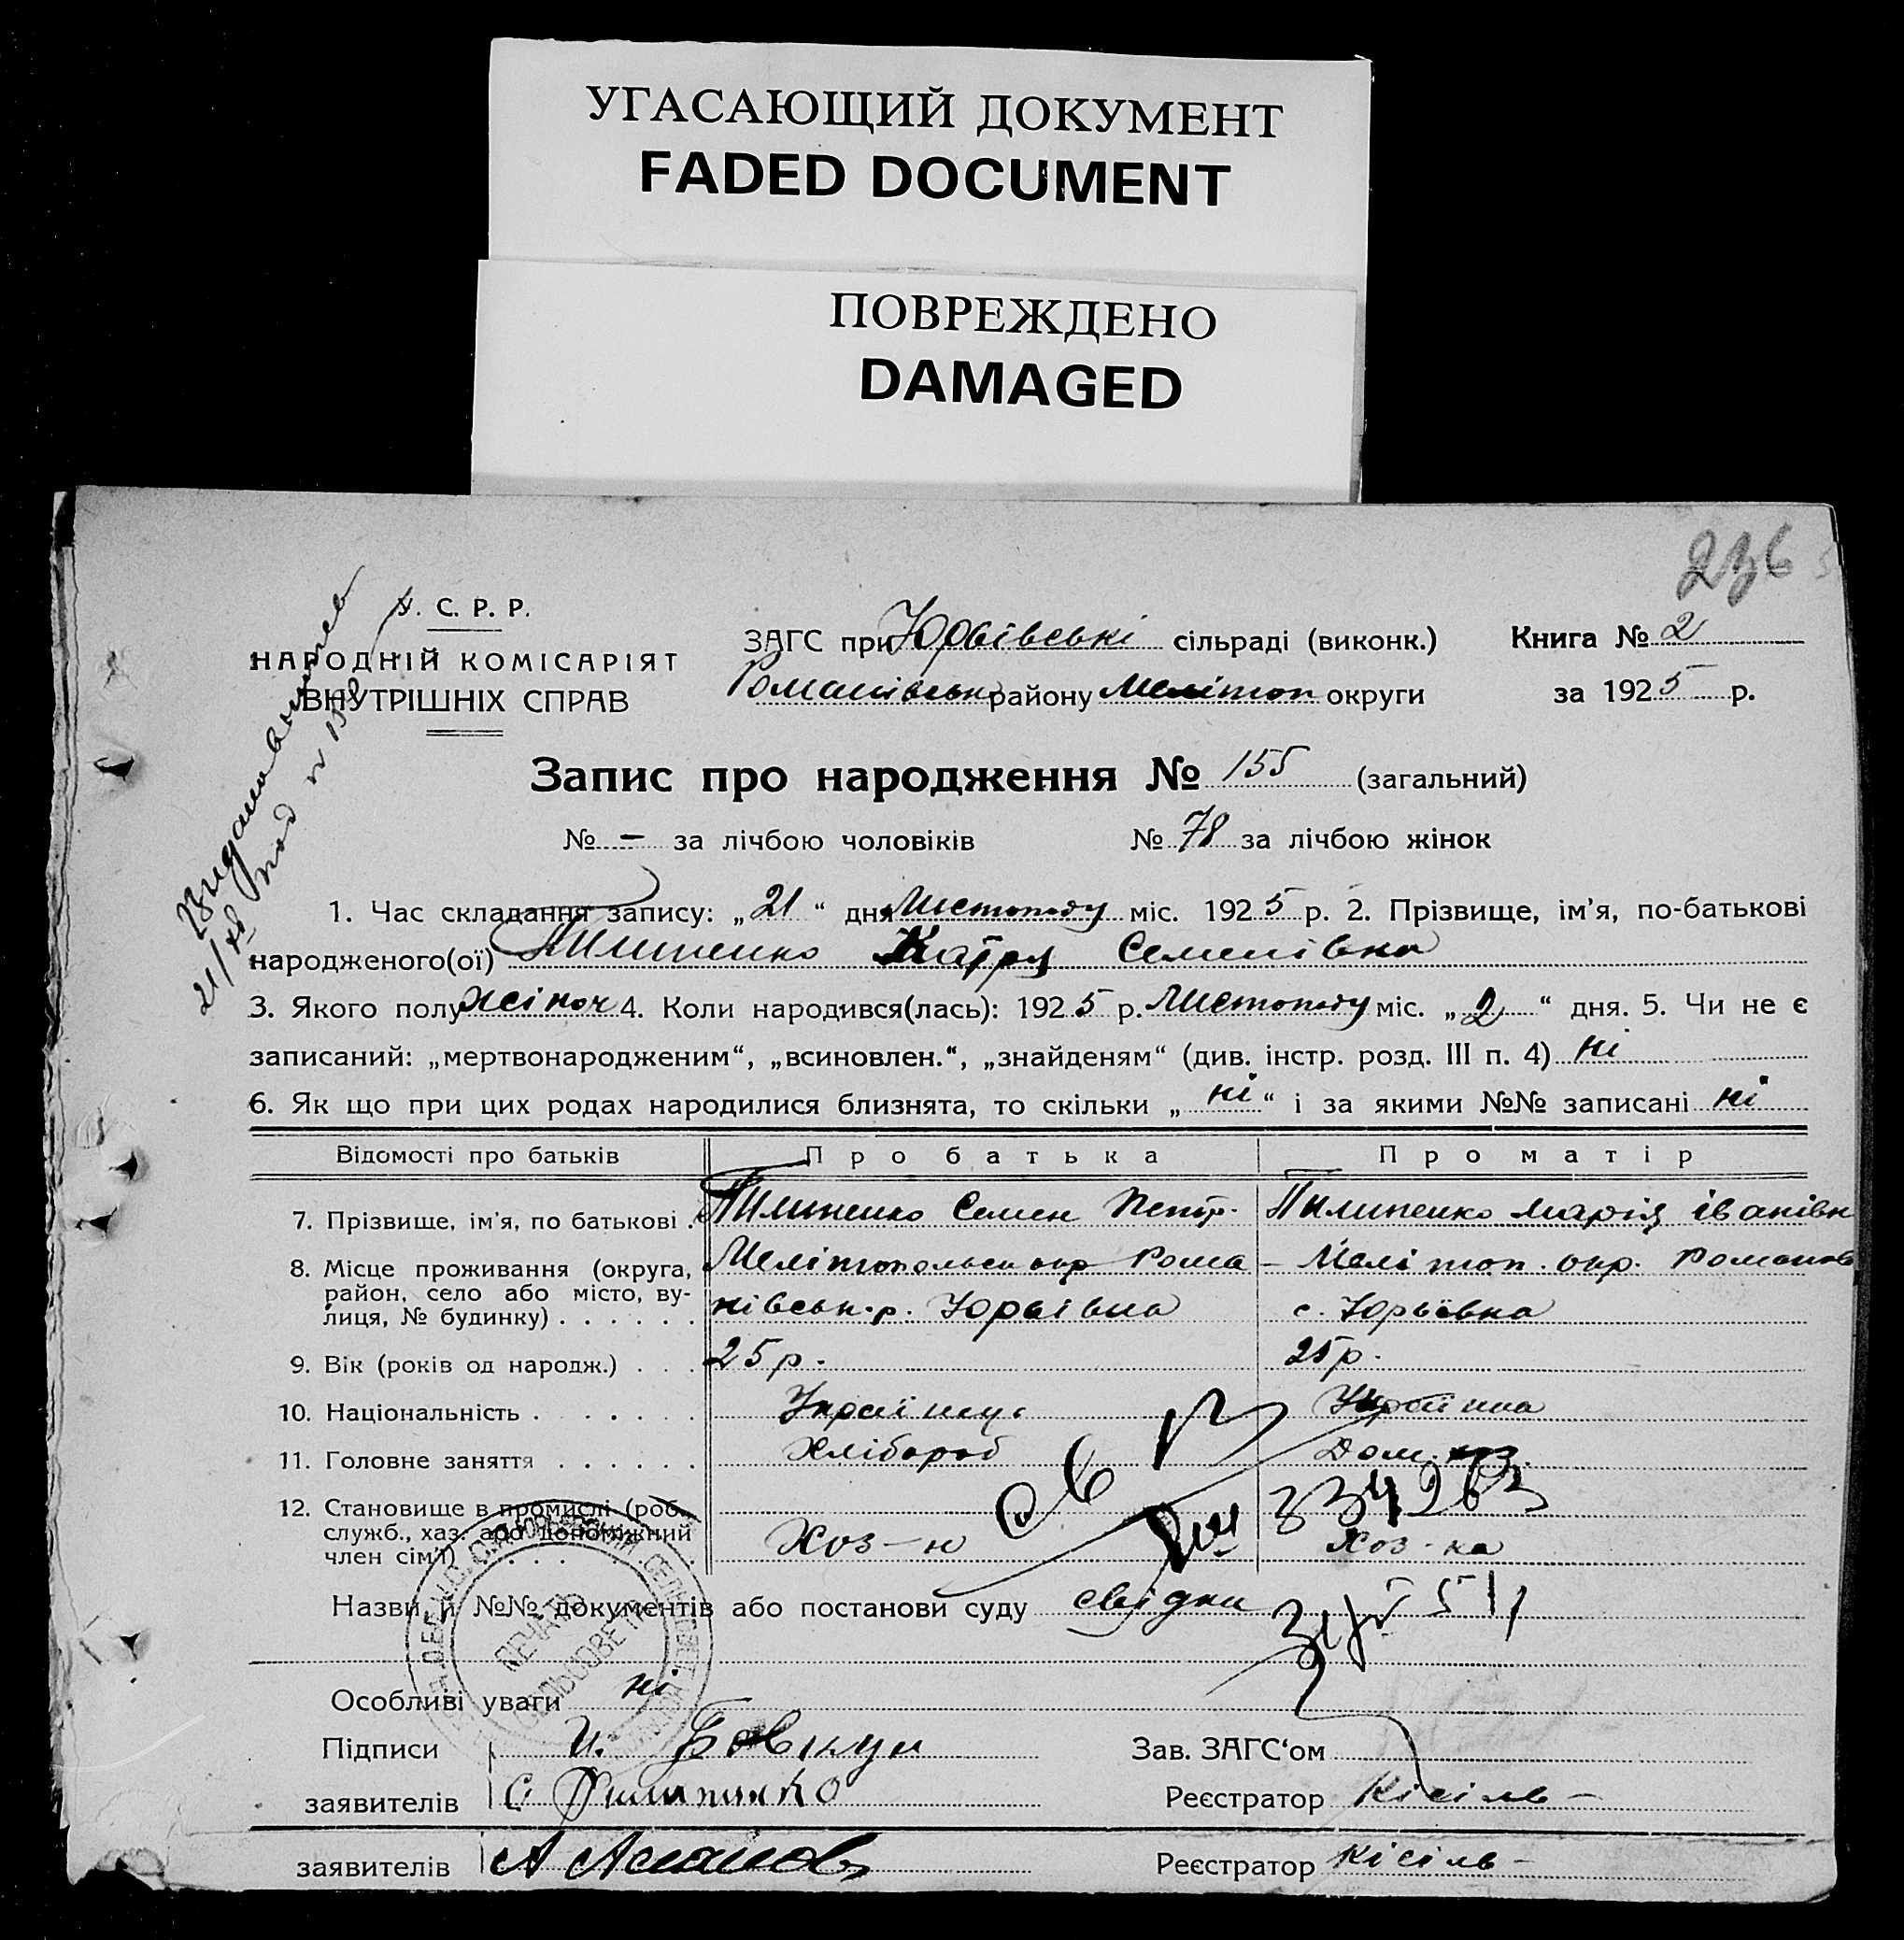 УГАСАЮЩИЙ ДОКУМЕНТ
FADED DOCUMENT
ПОВРЕЖДЕНО
DAMAGED
236
С. Р. Р.
НАРОДНІЙ КОМІСАРІЯТ
ВНУТРІШНІХ СПРАВ
ЗАГС при Юрьівські сільраді (виконк.)
Романівськ району Мелітоп округи
Книга № 2
за 1925 р.
Запис про народження № 155 (загальний)
№ – за лічбою чоловіків № 78 за лічбою жінок
1. Час складання запису: „21“ дня Листопаду міс. 1925 р. 2. Прізвище, ім’я, по-батькові
народженого(ої) Пилипенко Катря Семенівна
3. Якого полу жіноч 4. Коли народився(лась): 1925 р. Листопаду міс. „2“ дня. 5. Чи не є
записаний: „мертвонародженим“, „всиновлен.“, „знайденям“ (див. інстр. розд. III п. 4) ні
6. Як що при цих родах народилися близнята, то скільки „ні“ і за якими №№ записані ні
Відомості про батьків Про батька Про матір
7. Прізвище, ім’я, по батькові Пилипенко Семен Петр. Пилипенко Марія Іванівн
8. Місце проживання (округа, Мелітопольськ окр Рома – Мелітоп. окр. Романов
район, село або місто, ву-
лиця, № будинку) нівськ. р. Юрьівка с. Юрьівка
9. Вік (років од народж.) 25 р. 25 р.
10. Національність Українец Українка
11. Головне заняття Хлібороб Дом. хоз.
12. Становище в промислі (роб.,
служб., хаз. або допоміжний
член сім’ї) Хоз–н Хоз-ка
334263
Назви й №№ документів або постанови суду свідки
ПЕЧАТЬ
СЕЛЬСОВЕТА
Особливі уваги ні
Підписи Зав. ЗАГС‘ом
заявителів С Пилипенко Реєстратор Кісіль –
заявителів Реєстратор Кісіль –